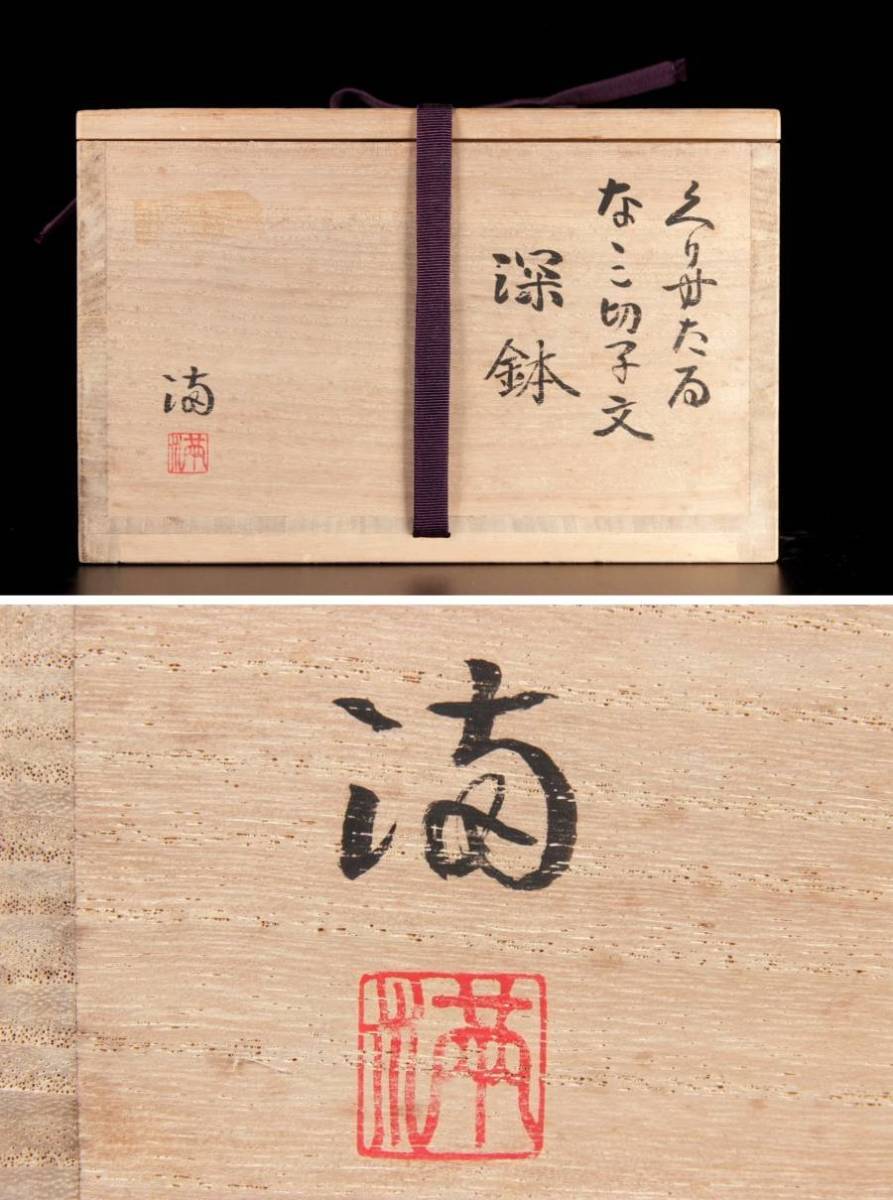 くりすたる
なゝこ切子文
深鉢
満
満
満
満